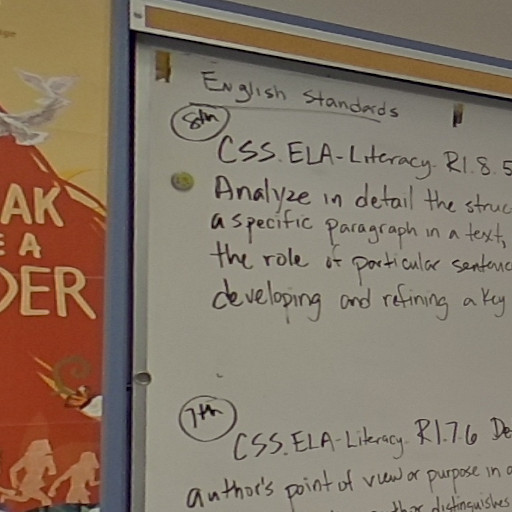 AK
E A
DER
English Standards
8th
CSS.ELA-Literacy. RI.8.5
Analyze in detail the struc
a specific paragraph in a text,
the role of particular sentenc
developing and refining a key
7th
CSS.ELA-Literacy. RI.7.6 De
author's point of view or purpose in a
distinguishes